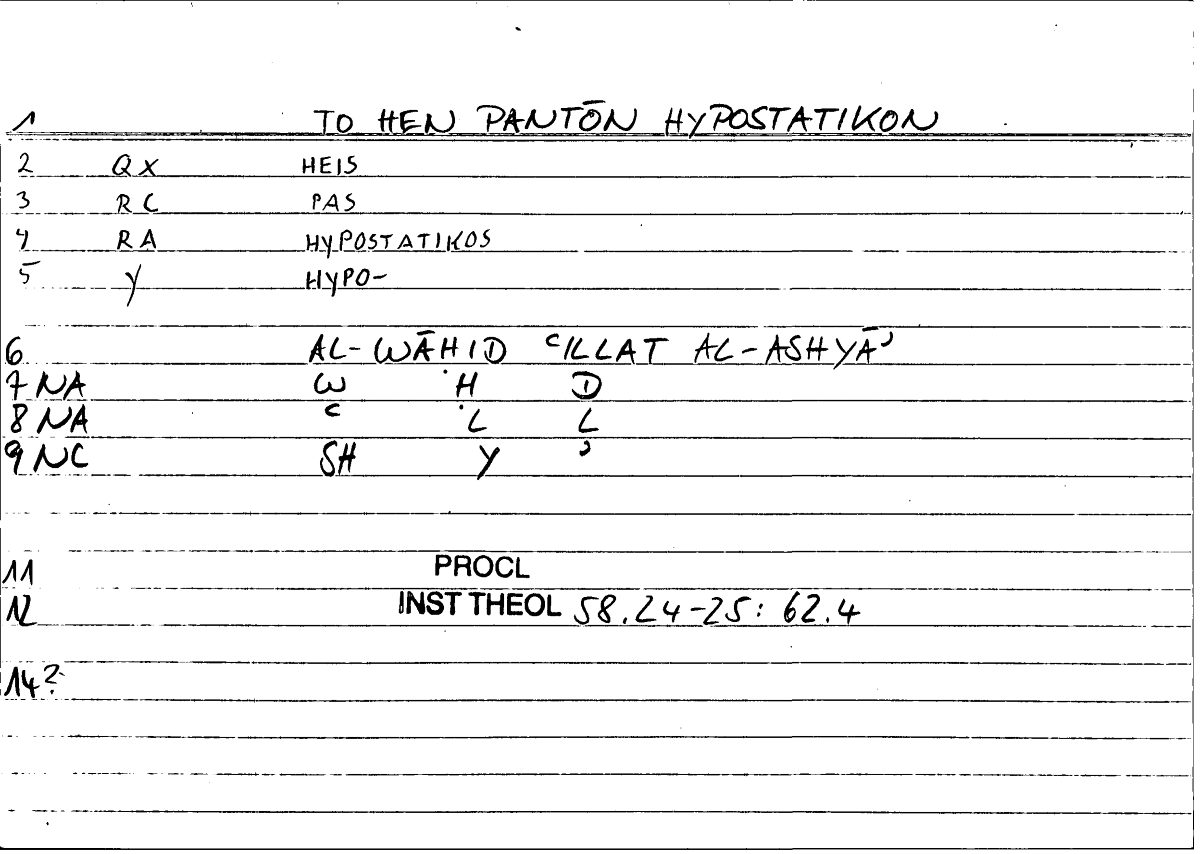 1 TO HEN PANTŌN HYPOSTATIKON
2 QX HEIS
3 RC PAS
4 RA HYPOSTATIKOS
5 Y HYPO-
6 AL-WĀḤID ʿILLAT AL-ASHYĀʾ
7 NA W Ḥ D
8 NA ʿ L L
9 NC SH Y ʾ
11 PROCL
12 INST THEOL 58.24-25: 62.4
14?